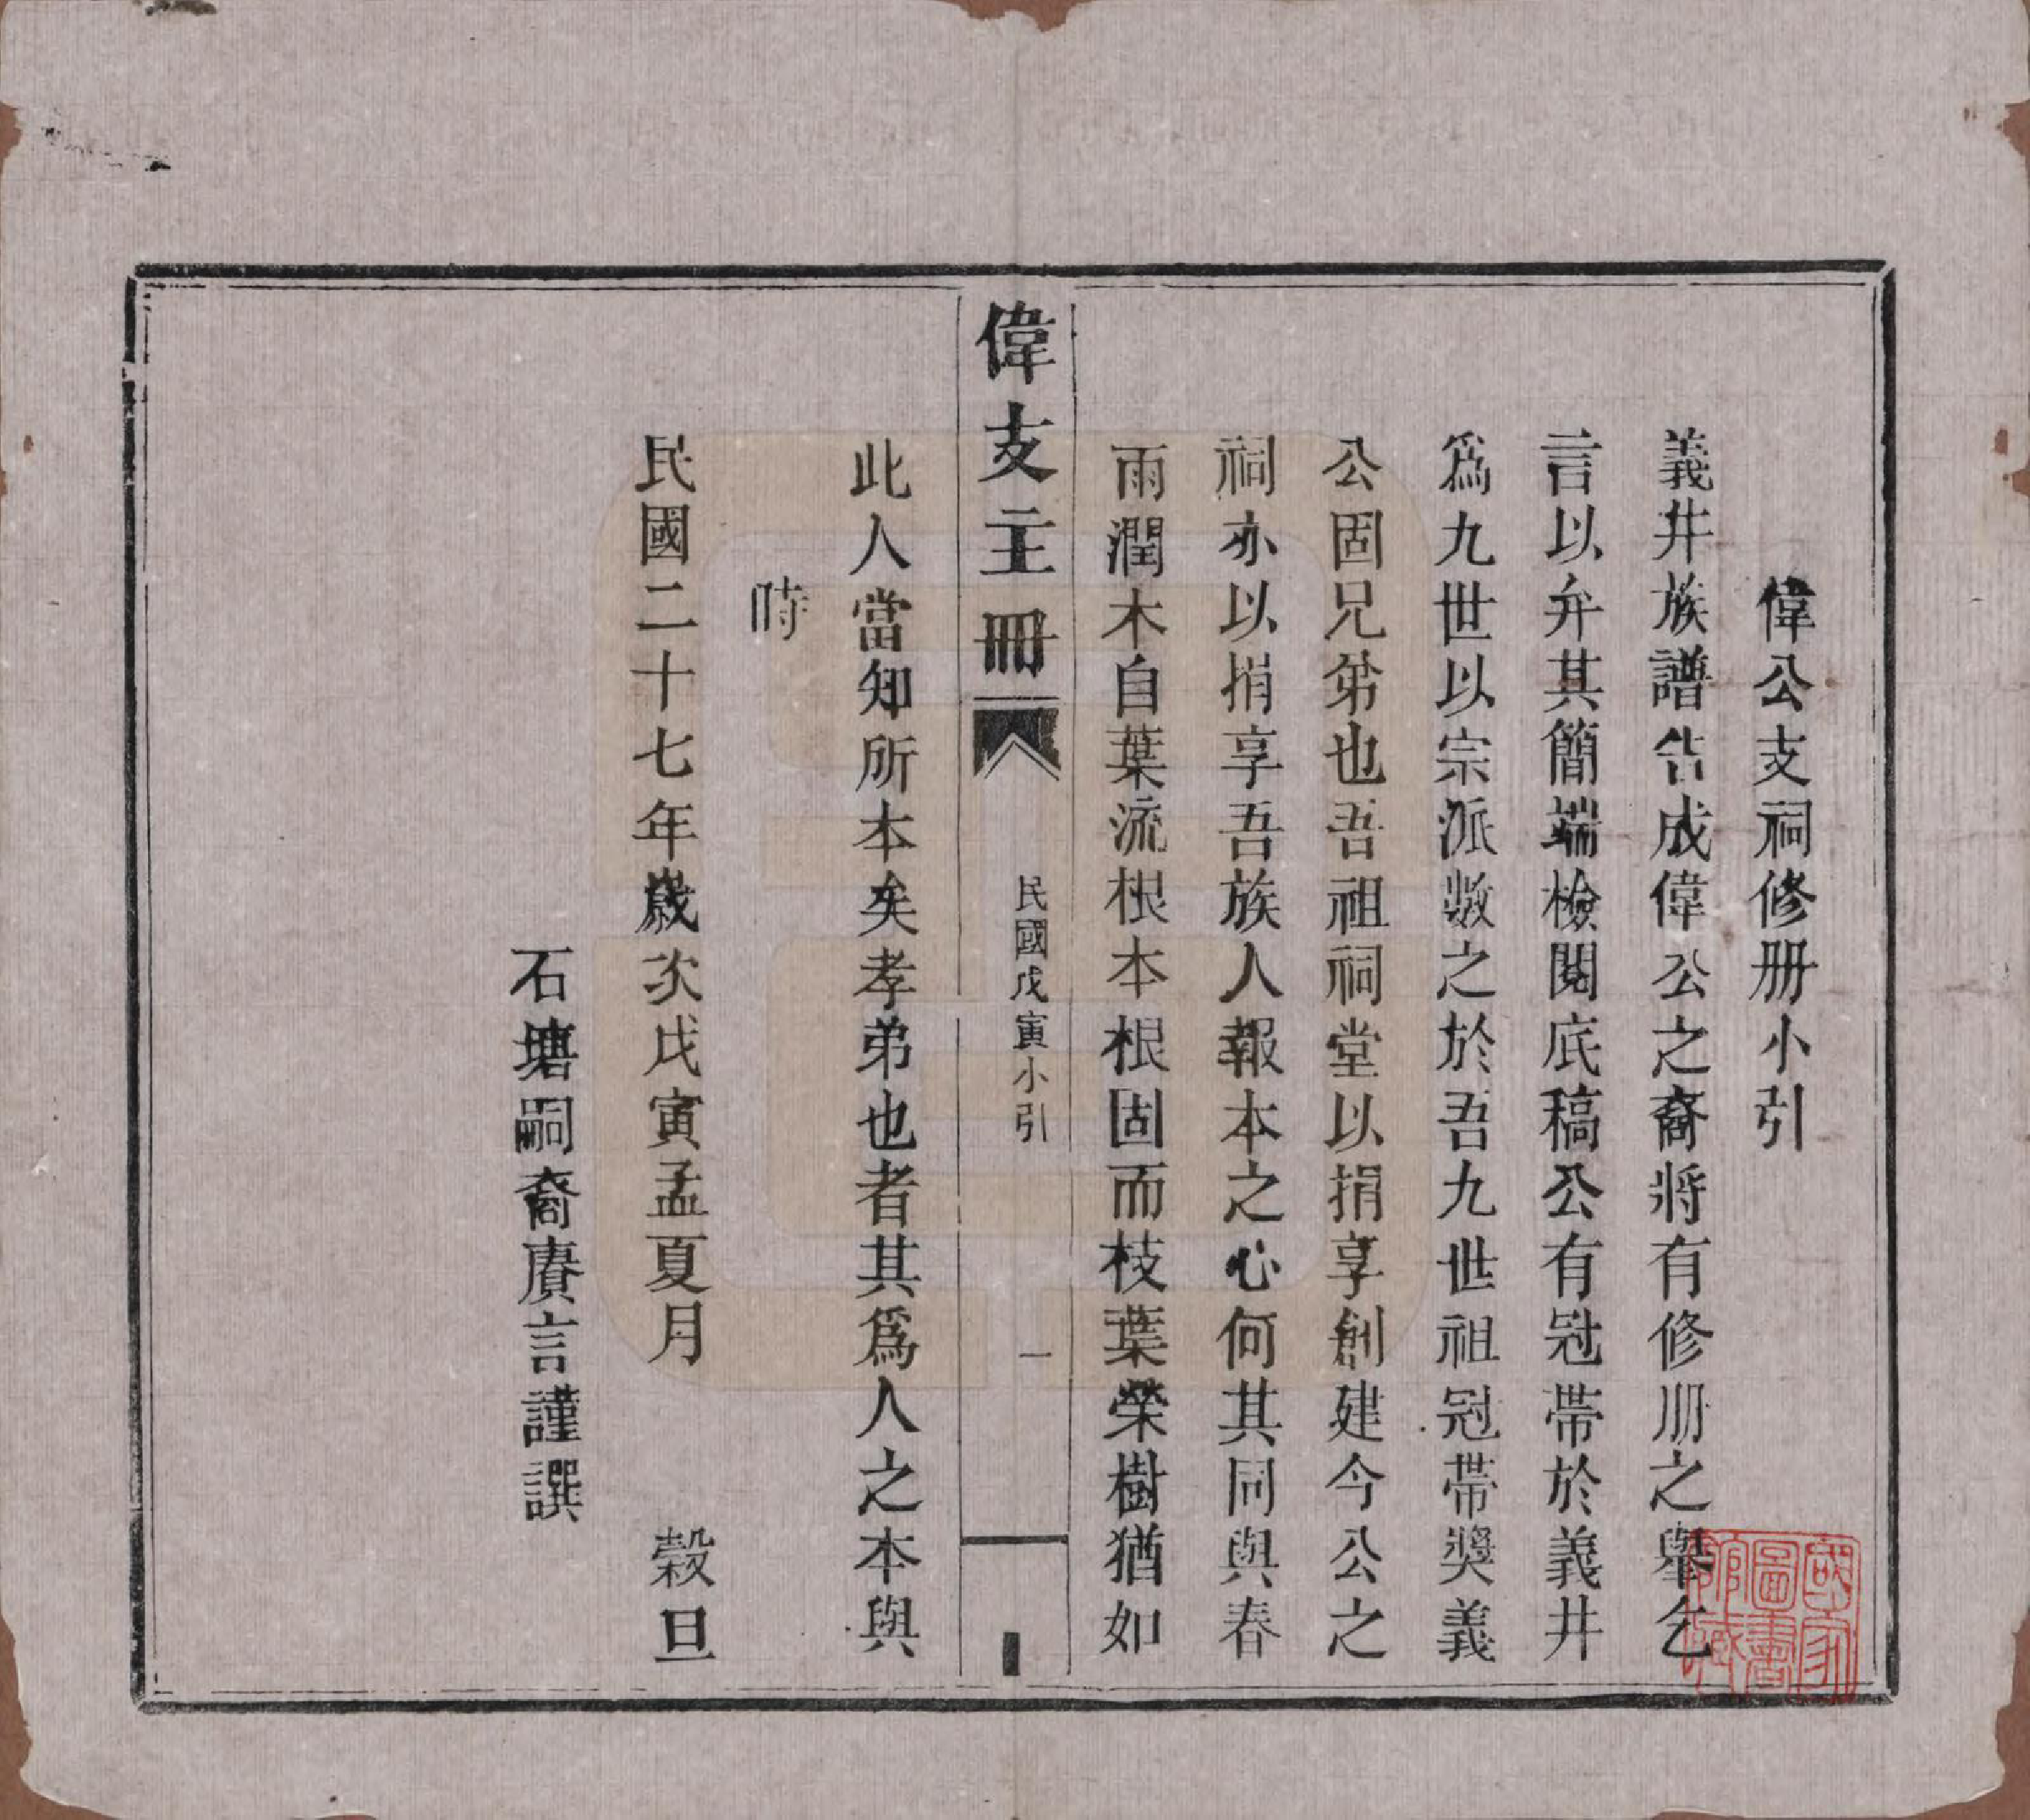 偉公支祠修册小引
義井族譜告成偉公之裔將有修册之舉乞
言以弁其簡端檢閱底稿公有冠帶於義井
爲九世以宗派數之於吾九世祖冠帶獎義
公固兄弟也吾祖祠堂以捐享創建今公之
祠亦以捐享吾族人報本之心何其同與春
雨潤木自葉流根本根固而枝葉榮樹猶如
偉支主冊
民國戊寅小引
一
此人當知所本矣孝弟也者其爲人之本與
時
民國二十七年歲次戊寅孟夏月 穀旦
石塘嗣裔賡言謹譔
國家圖書館藏